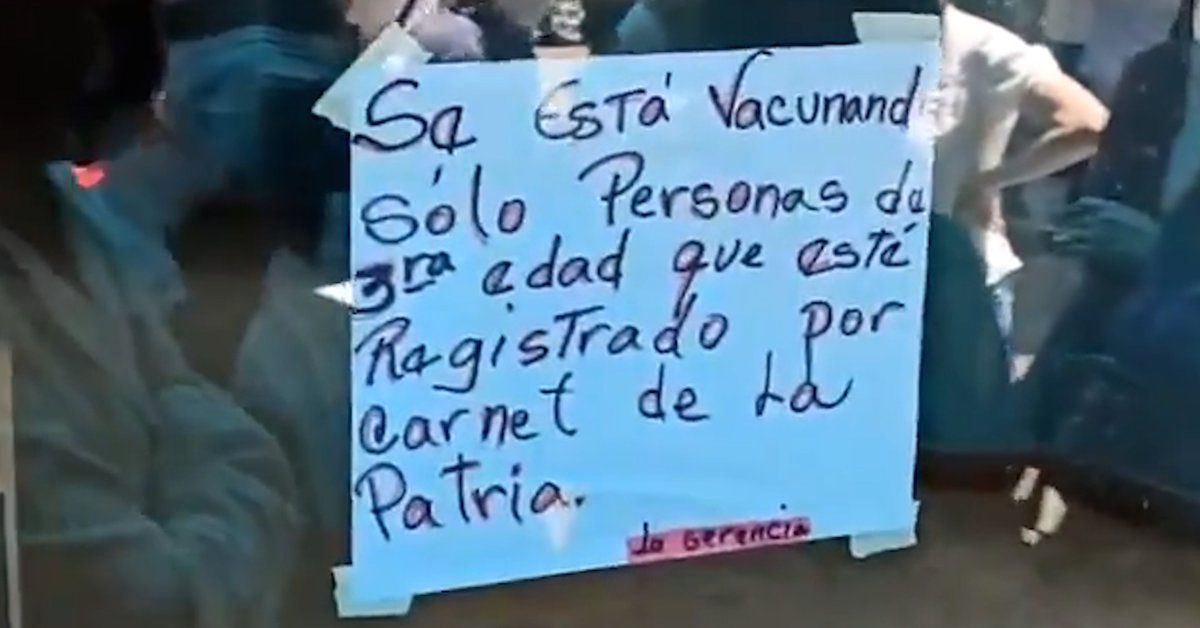 Se Está Vacunand
Sólo Personas de
3ra edad que esté
Registrado por
Carnet de La
Patria.
La Gerencia